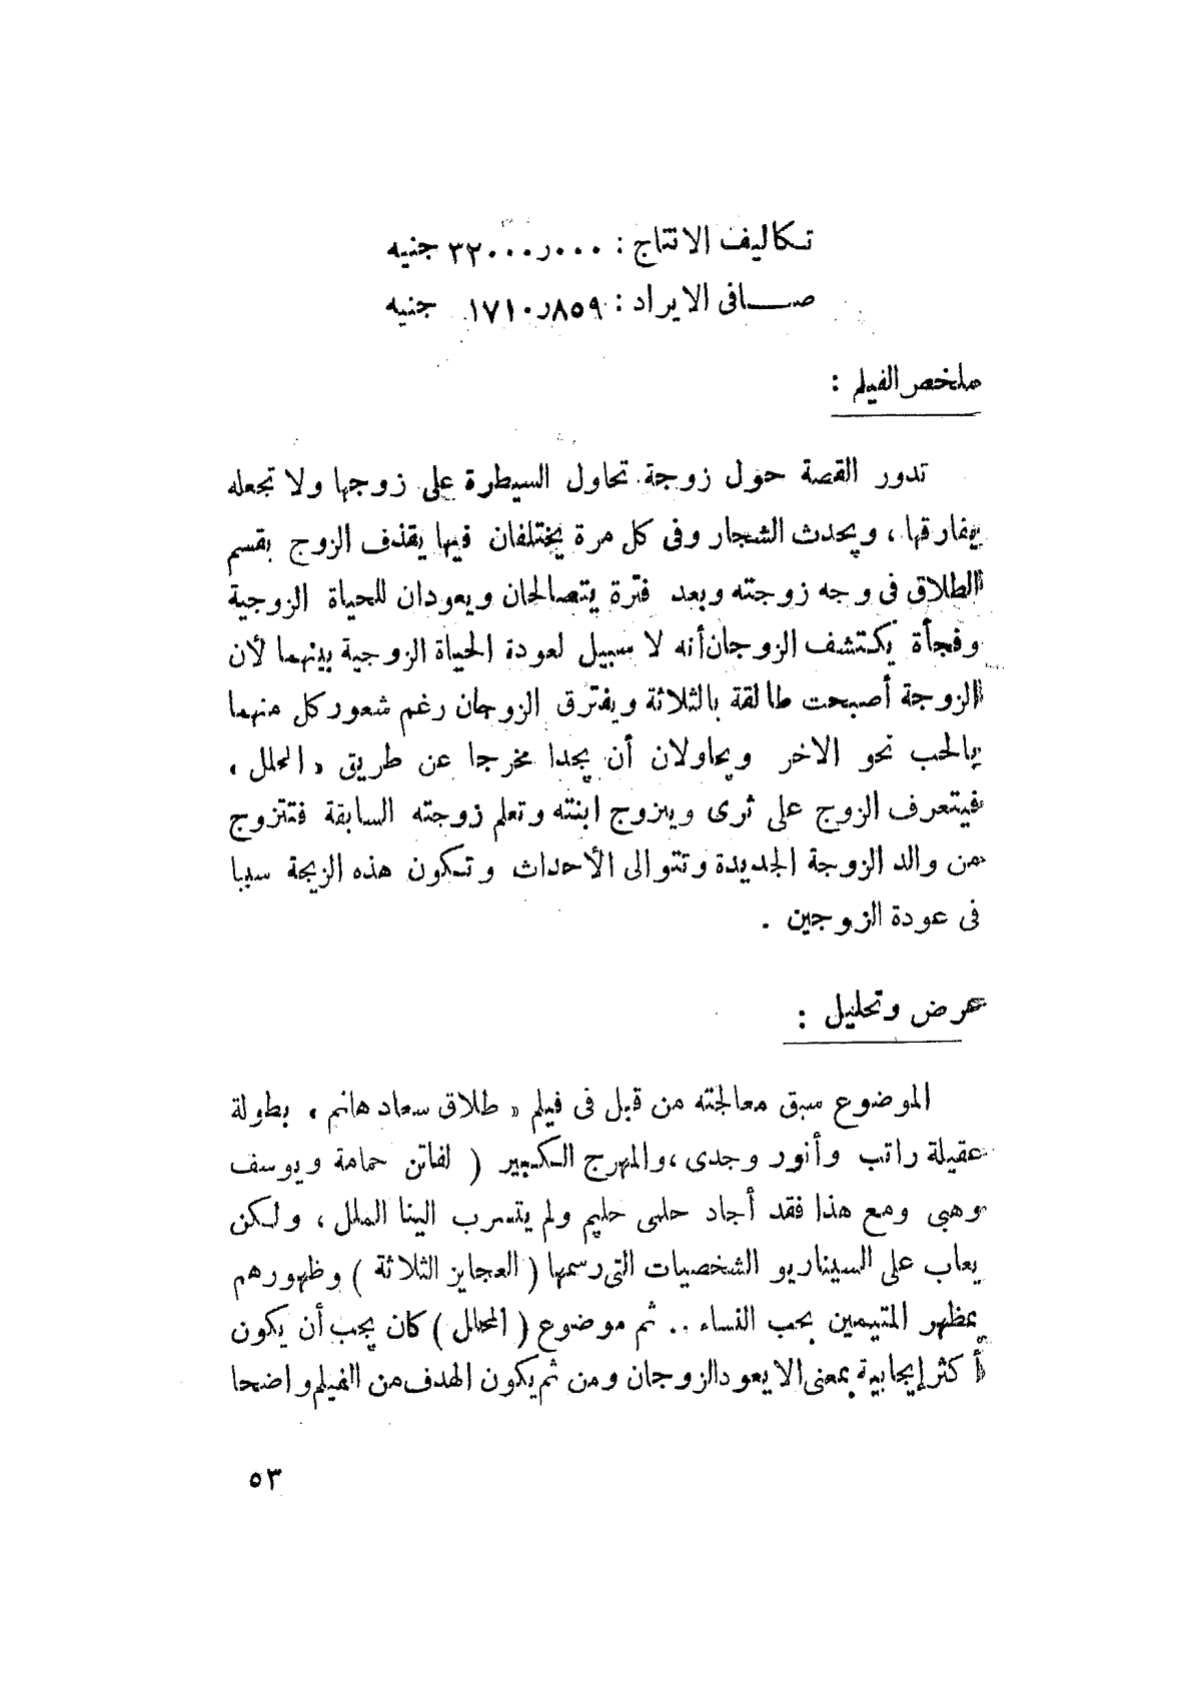 تكاليف الانتاج : ٣٢٠٠٠ر٠٠٠ جنيه
صافى الايراد : ١٧١٠ر٨٥٩ جنيه
ملخص الفيلم :
تدور القصة حول زوجة تحاول السيطرة على زوجها ولا تجعله
يفارقها ، ويحدث الشجار وفى كل مرة يختلفان فيها يقذف الزوج بقسم
الطلاق فى وجه زوجته وبعد فترة يتصالحان ويعودان للحياة الزوجية
وفجأة يكتشف الزوجان أنه لا سبيل لعودة الحياة الزوجية بينهما لأن
الزوجة أصبحت طالقة بالثلاثة ويفترق الزوجان رغم شعور كل منهما
بالحب نحو الاخر ويحاولان أن يجدا مخرجا عن طريق « المحلل »
فيتعرف الزوج على ثرى ويتزوج ابنته وتعلم زوجته السابقة فتتزوج
من والد الزوجة الجديدة وتتوالى الأحداث وتكون هذه الزيجة سببا
فى عودة الزوجين .
عرض وتحليل :
الموضوع سبق معالجته من قبل فى فيلم « طلاق سعاد هانم » بطولة
عقيلة راتب وأنور وجدى ، والمهرج الكبير ( لفاتن حمامة ويوسف
وهبى ومع هذا فقد أجاد حلمى حليم ولم يتسرب الينا الملل ، ولكن
يعاب على السيناريو الشخصيات التى رسمها ( العجايز الثلاثة ) وظهورهم
بمظهر المتيمين بحب النساء .. ثم موضوع ( المحلل ) كان يجب أن يكون
أكثر إيجابية بمعنى الا يعود الزوجان ومن ثم يكون الهدف من الفيلم واضحا
٥٣